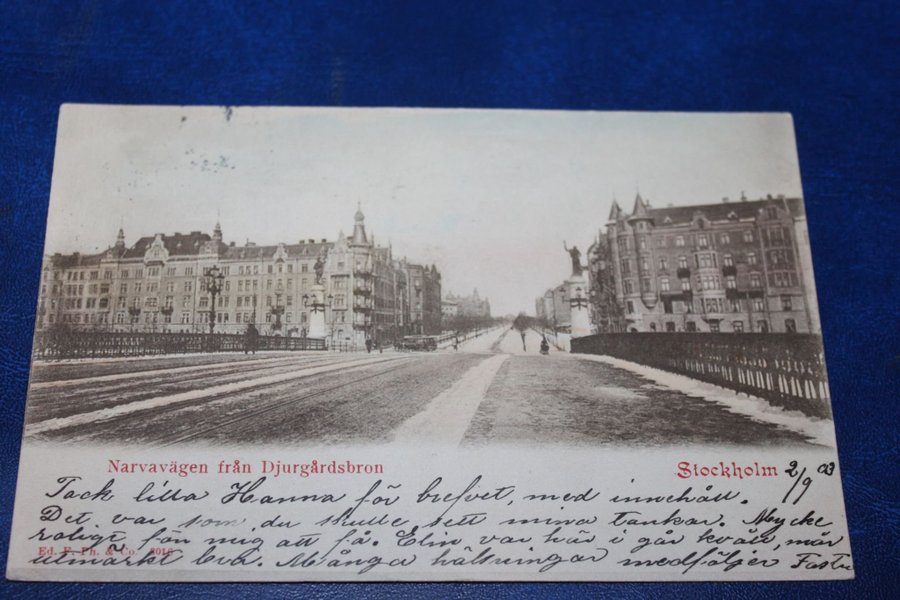 Narvavägen från Djurgårdsbron
Stockholm 2/9 03
Tack lilla Hanna för brefvet, med innehåll.
Det var som du skulle sett mina tankar. Mycke
roligt för mig att få. Elin var här i går kväll, mår
Ed. F. Ph. & Co.
utmärkt bra. Många hälsningar medföljer